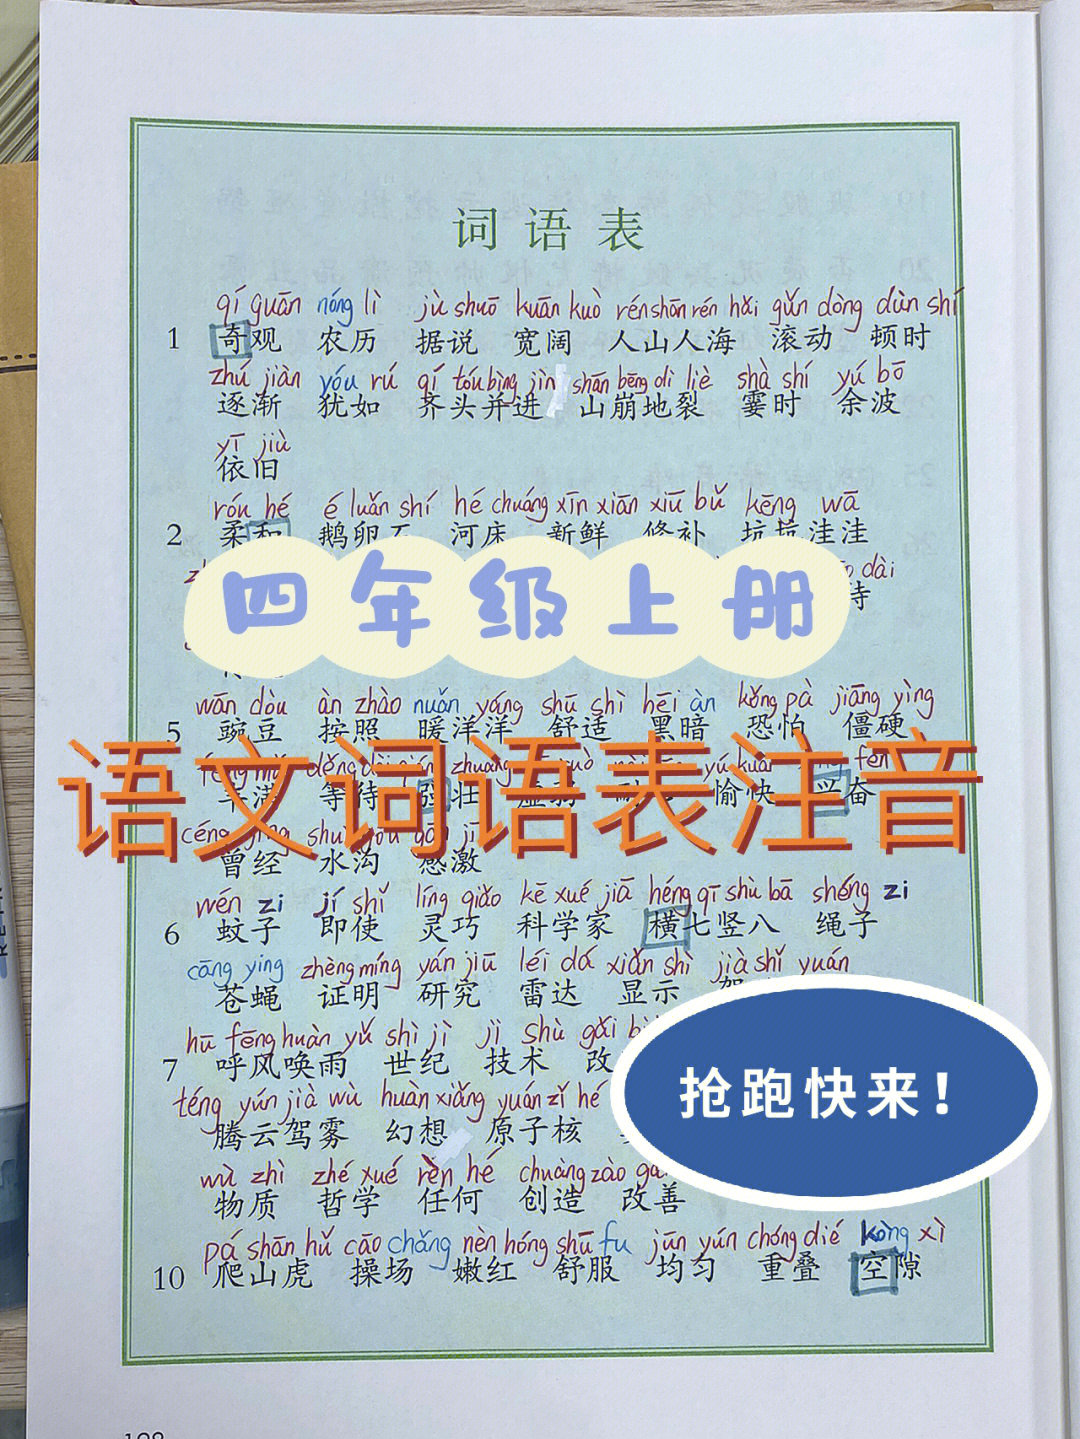 词语表
qí guān nóng lì jù shuō kuān kuò rén shān rén hǎi gǔn dòng dùn shí
1 奇观 农历 据说 宽阔 人山人海 滚动 顿时
zhú jiàn yóu rú qí tóu bìng jìn shān bēng dì liè shà shí yú bō
逐渐 犹如 齐头并进 山崩地裂 霎时 余波
yī jiù
依旧
róu hé é luǎn shí hé chuáng xīn xiān xiū bǔ kēng wā
2 柔和 鹅卵石 河床 新鲜 修补 坑坑洼洼
dài
待
四年级上册
wān dòu àn zhào nuǎn yáng shū shì hēi àn kǒng pà jiāng yìng
5 豌豆 按照 暖洋洋 舒适 黑暗 恐怕 僵硬
等待 强壮 愉快 兴奋
语文词语表注音
曾经 水沟 感激
wén zi jí shǐ líng qiǎo kē xué jiā héng qī shù bā shéng zi
6 蚊子 即使 灵巧 科学家 横七竖八 绳子
cāng ying zhèng míng yán jiū léi dá xiǎn shì jià shǐ yuán
苍蝇 证明 研究 雷达 显示
hū fēng huàn yǔ shì jì jì shù gǎi
7 呼风唤雨 世纪 技术 改
抢跑快来！
téng yún jià wù huàn xiǎng yuán zǐ hé
腾云驾雾 幻想 原子核
wù zhì zhé xué rèn hé chuàng zào gǎi
物质 哲学 任何 创造 改善
pá shān hǔ cāo chǎng nèn hóng shū fu jūn yún chóng dié kòng xì
10 爬山虎 操场 嫩红 舒服 均匀 重叠 空隙